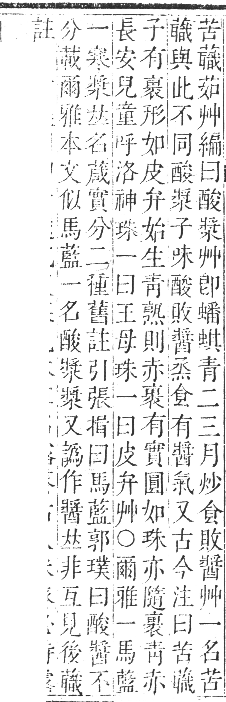 苦蘵茹艸編曰酸漿艸卽蟠蜞青二三月炒食敗醬艸一名苦
蘵與此不同酸漿子味酸敗醬蒸食有醬氣又古今注曰苦蘵
子有裹形如皮弁始生青熟則赤裹有實圓如珠亦隨裹青赤
長安兒童呼洛神珠一曰王母珠一曰皮弁艸○爾雅一馬藍
一寒漿𠀤名葴實分二種舊註引張揖曰馬藍郭璞曰酸醬不
分蕺爾雅本文似馬藍一名酸漿漿又譌作醬𠀤非互見後蘵
註